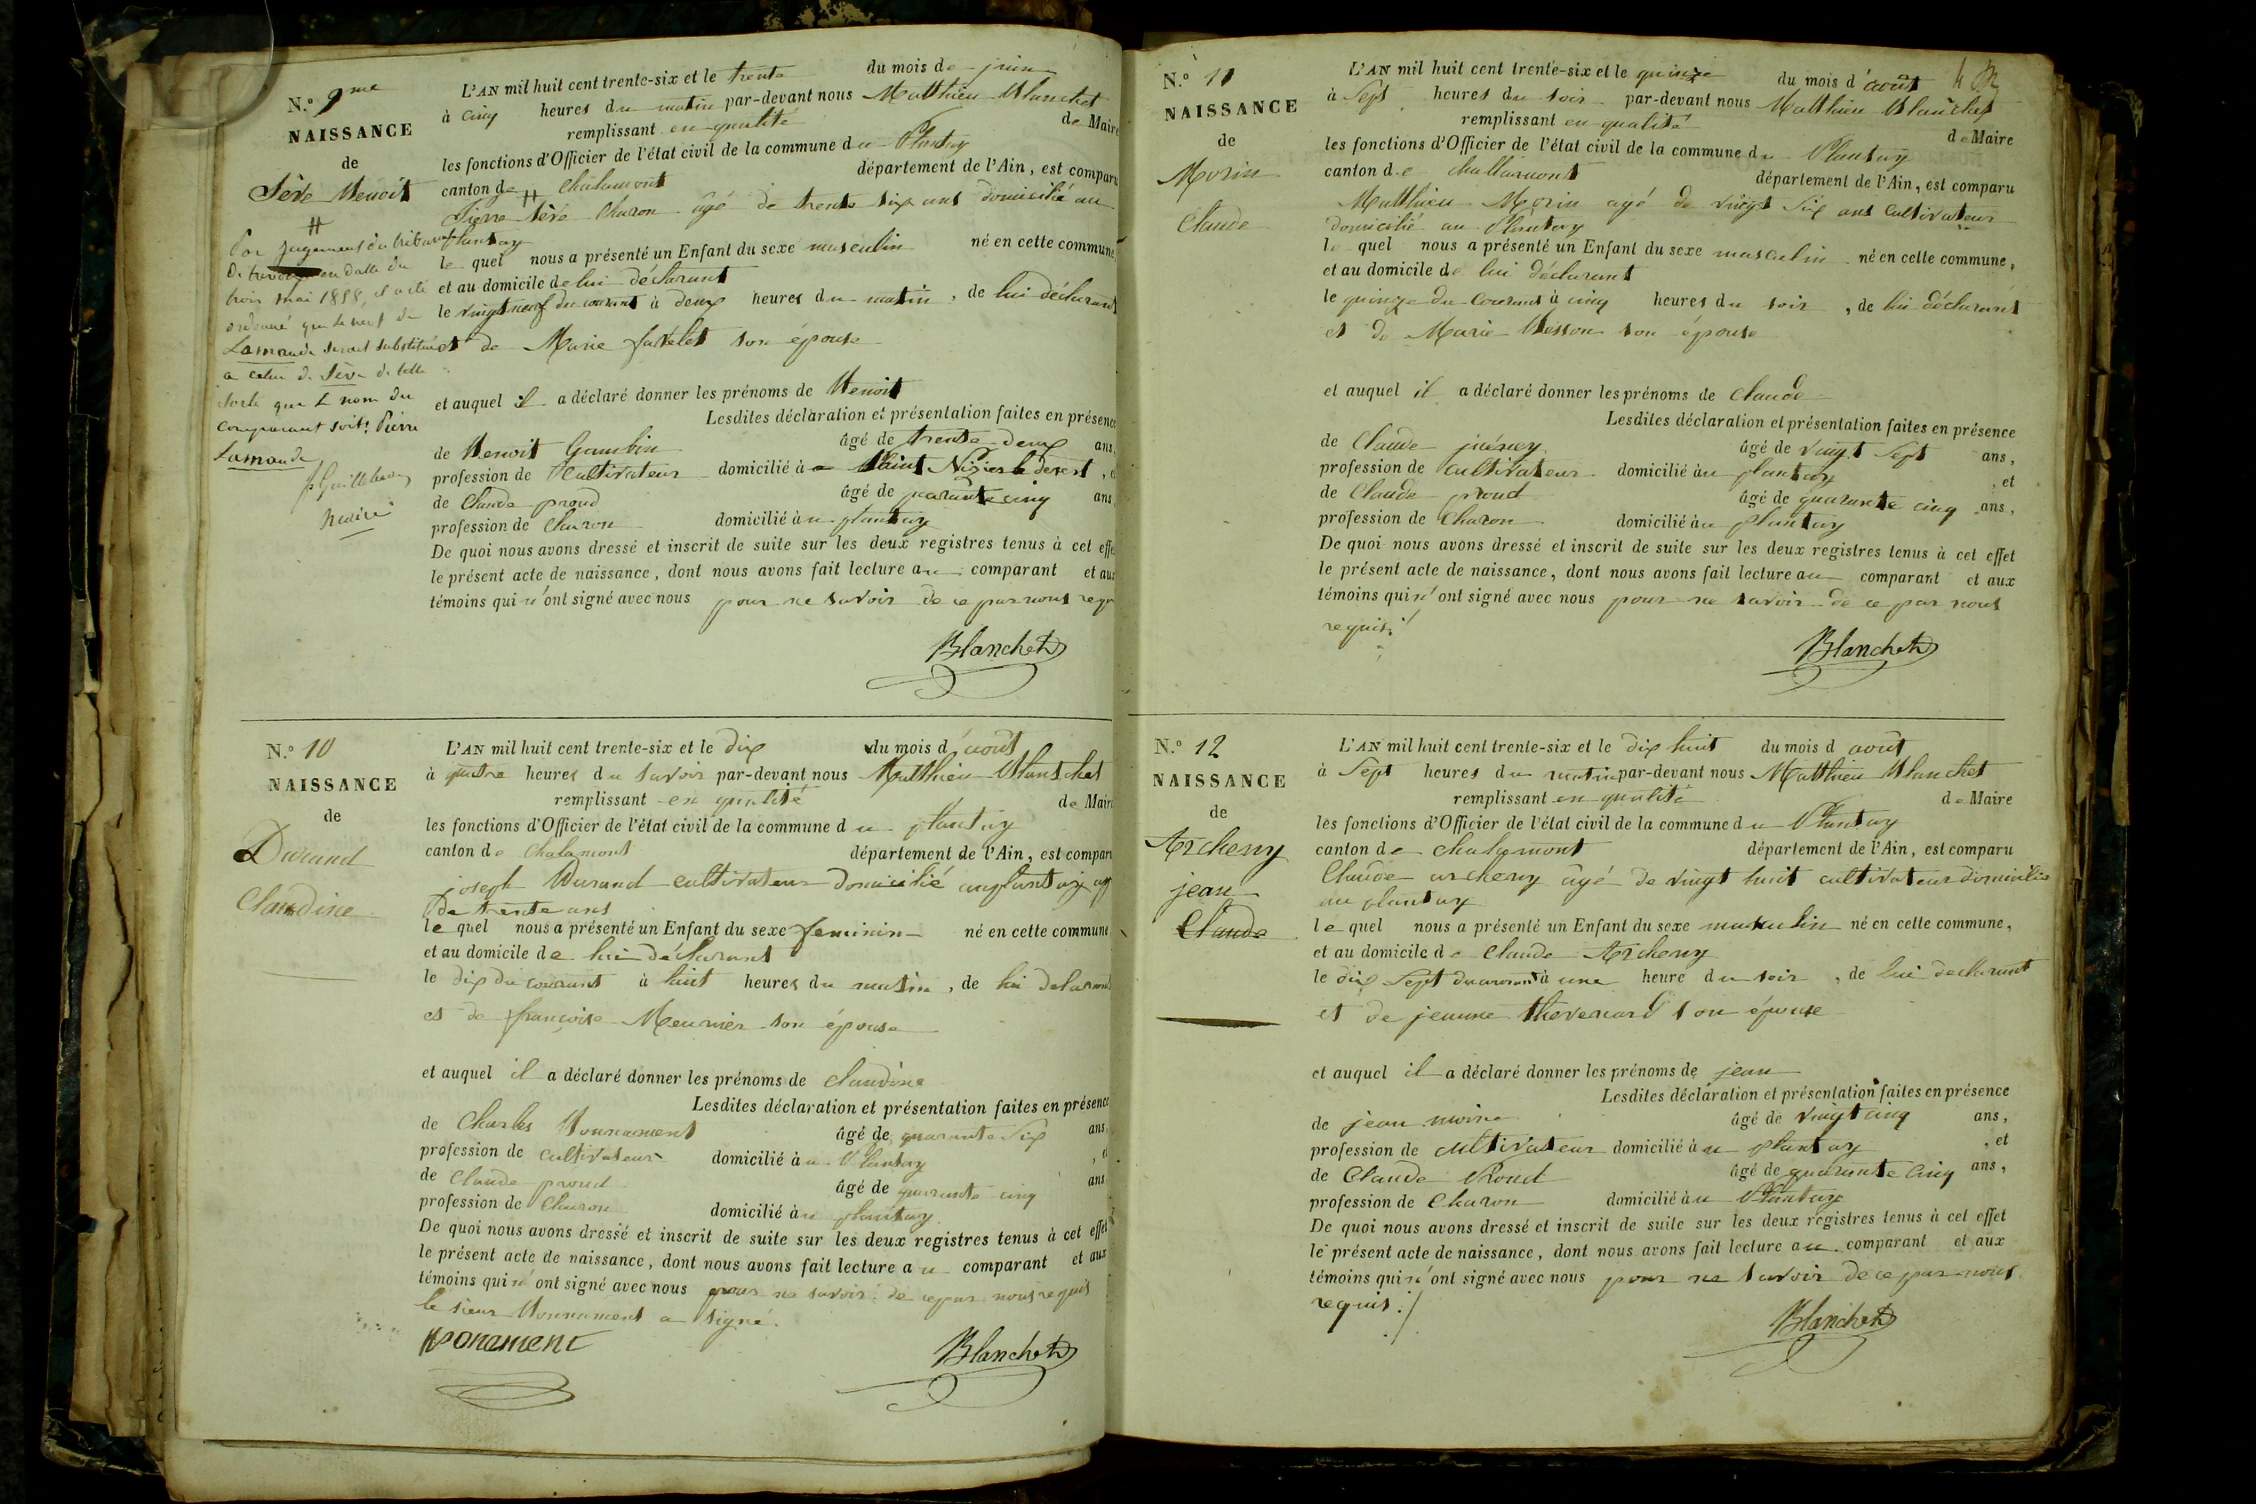 N.° 9me
NAISSANCE
de
Sève Benoit
#
Par jugement du tribunal
de trevoux en datte du
trois mai 1858, il a été
ordonné que le nom de
Lamande serait substitué
a celui de Sève de telle
sorte que le nom du
comparant soit: Pierre
Lamande
L'AN mil huit cent trente-six et le trente du mois de juin
à cinq heures du matin par-devant nous Matthieu Blanchet
remplissant en qualité de Maire
les fonctions d'Officier de l'état civil de la commune du Plantay
canton de Chalamont département de l'Ain, est comparu
Pierre # Sève Charon âgé de trente six ans domicilié au
plantay
le quel nous a présenté un Enfant du sexe masculin né en cette commune
et au domicile de lui déclarant
le vingt neuf du courant à deux heures du matin, de lui déclarant
et de Marie son épouse
et auquel il a déclaré donner les prénoms de Benoit
Lesdites déclaration et présentation faites en présence
de Benoit Gambin âgé de trente deux ans,
profession de Cultivateur domicilié à Saint Nizier le desert,
de Claude proud âgé de quarante cinq ans
profession de Charon domicilié au plantay
De quoi nous avons dressé et inscrit de suite sur les deux registres tenus à cet effe
le présent acte de naissance, dont nous avons fait lecture au comparant et aux
témoins qui n'ont signé avec nous pour ne savoir de ce par nous requ
Blanchet
N.° 10
NAISSANCE
de
Durand
Claudine
L'AN mil huit cent trente-six et le dix du mois d'août
à quatre heures du savoir par-devant nous Matthieu Blanchet
remplissant en qualité de Maire
les fonctions d'Officier de l'état civil de la commune du plantay
canton de Chalamont département de l'Ain, est comparu
joseph Durand cultivateur domicilié au plantay age
de trente ans
le quel nous a présenté un Enfant du sexe feminin né en cette commune
et au domicile de lui déclarant
le dix du courant à huit heures du matin, de lui delarant
et de françoise Meunier son épouse
et auquel il a déclaré donner les prénoms de claudine
Lesdites déclaration et présentation faites en présence
de Charles Bonnament âgé de quarante six ans,
profession de cultivateur domicilié au Plantay,
de Claude proud âgé de quarante cinq ans
profession de Charon domicilié au plantay
De quoi nous avons dressé et inscrit de suite sur les deux registres tenus à cet effet
le présent acte de naissance, dont nous avons fait lecture au comparant et aux
témoins qui n'ont signé avec nous pour ne savoir de ce par nous requis
le sieur Bonnament a signé.
Bonament
Blanchet
N.° 11
NAISSANCE
de
Morin
Claude
L'AN mil huit cent trente-six et le quinze du mois d'août
à Sept heures du soir par-devant nous Matthieu Blanchet
remplissant en qualité de Maire
les fonctions d'Officier de l'état civil de la commune du Plantay
canton de Challamont département de l'Ain, est comparu
Matthieu Morin agé de vingt six ans Cultivateur
domicilié au Plantay
le quel nous a présenté un Enfant du sexe masculin né en cette commune,
et au domicile de lui déclarant
le quinze du courant à cinq heures du soir, de lui déclarant
et de Marie Besson son épouse
et auquel il a déclaré donner les prénoms de Claude
Lesdites déclaration et présentation faites en présence
de Claude âgé de vingt Sept ans,
profession de cultivateur domicilié au plantay, et
de Claude proud âgé de quarante cinq ans,
profession de Charon domicilié au plantay
De quoi nous avons dressé et inscrit de suite sur les deux registres tenus à cet effet
le présent acte de naissance, dont nous avons fait lecture au comparant et aux
témoins qui n'ont signé avec nous pour ne savoir de ce par nous
requis
Blanchet
N.° 12
NAISSANCE
de
Archeny
jean
Claude
L'AN mil huit cent trente-six et le dix huit du mois d août
à Sept heures du matin par-devant nous Matthieu Blanchet
remplissant en qualité de Maire
les fonctions d'Officier de l'état civil de la commune du Plantay
canton de Chalamont département de l'Ain, est comparu
Claude archeny âgé de vingt huit cultivateur domicilié
au plantay
le quel nous a présenté un Enfant du sexe masculin né en cette commune,
et au domicile de Claude Archeny
le dix Sept du courant à une heure du soir, de lui declarant
et de jeanne thevenard son épouse
et auquel il a déclaré donner les prénoms de jean
Lesdites déclaration et présentation faites en présence
de jean moine âgé de vingt cinq ans,
profession de cultivateur domicilié au plantay, et
de Claude Proud âgé de quarante cinq ans,
profession de Charon domicilié au Plantay
De quoi nous avons dressé et inscrit de suite sur les deux registres tenus à cet effet
le présent acte de naissance, dont nous avons fait lecture au comparant et aux
témoins qui n'ont signé avec nous pour ne savoir de ce par nous
requis ./
Blanchet